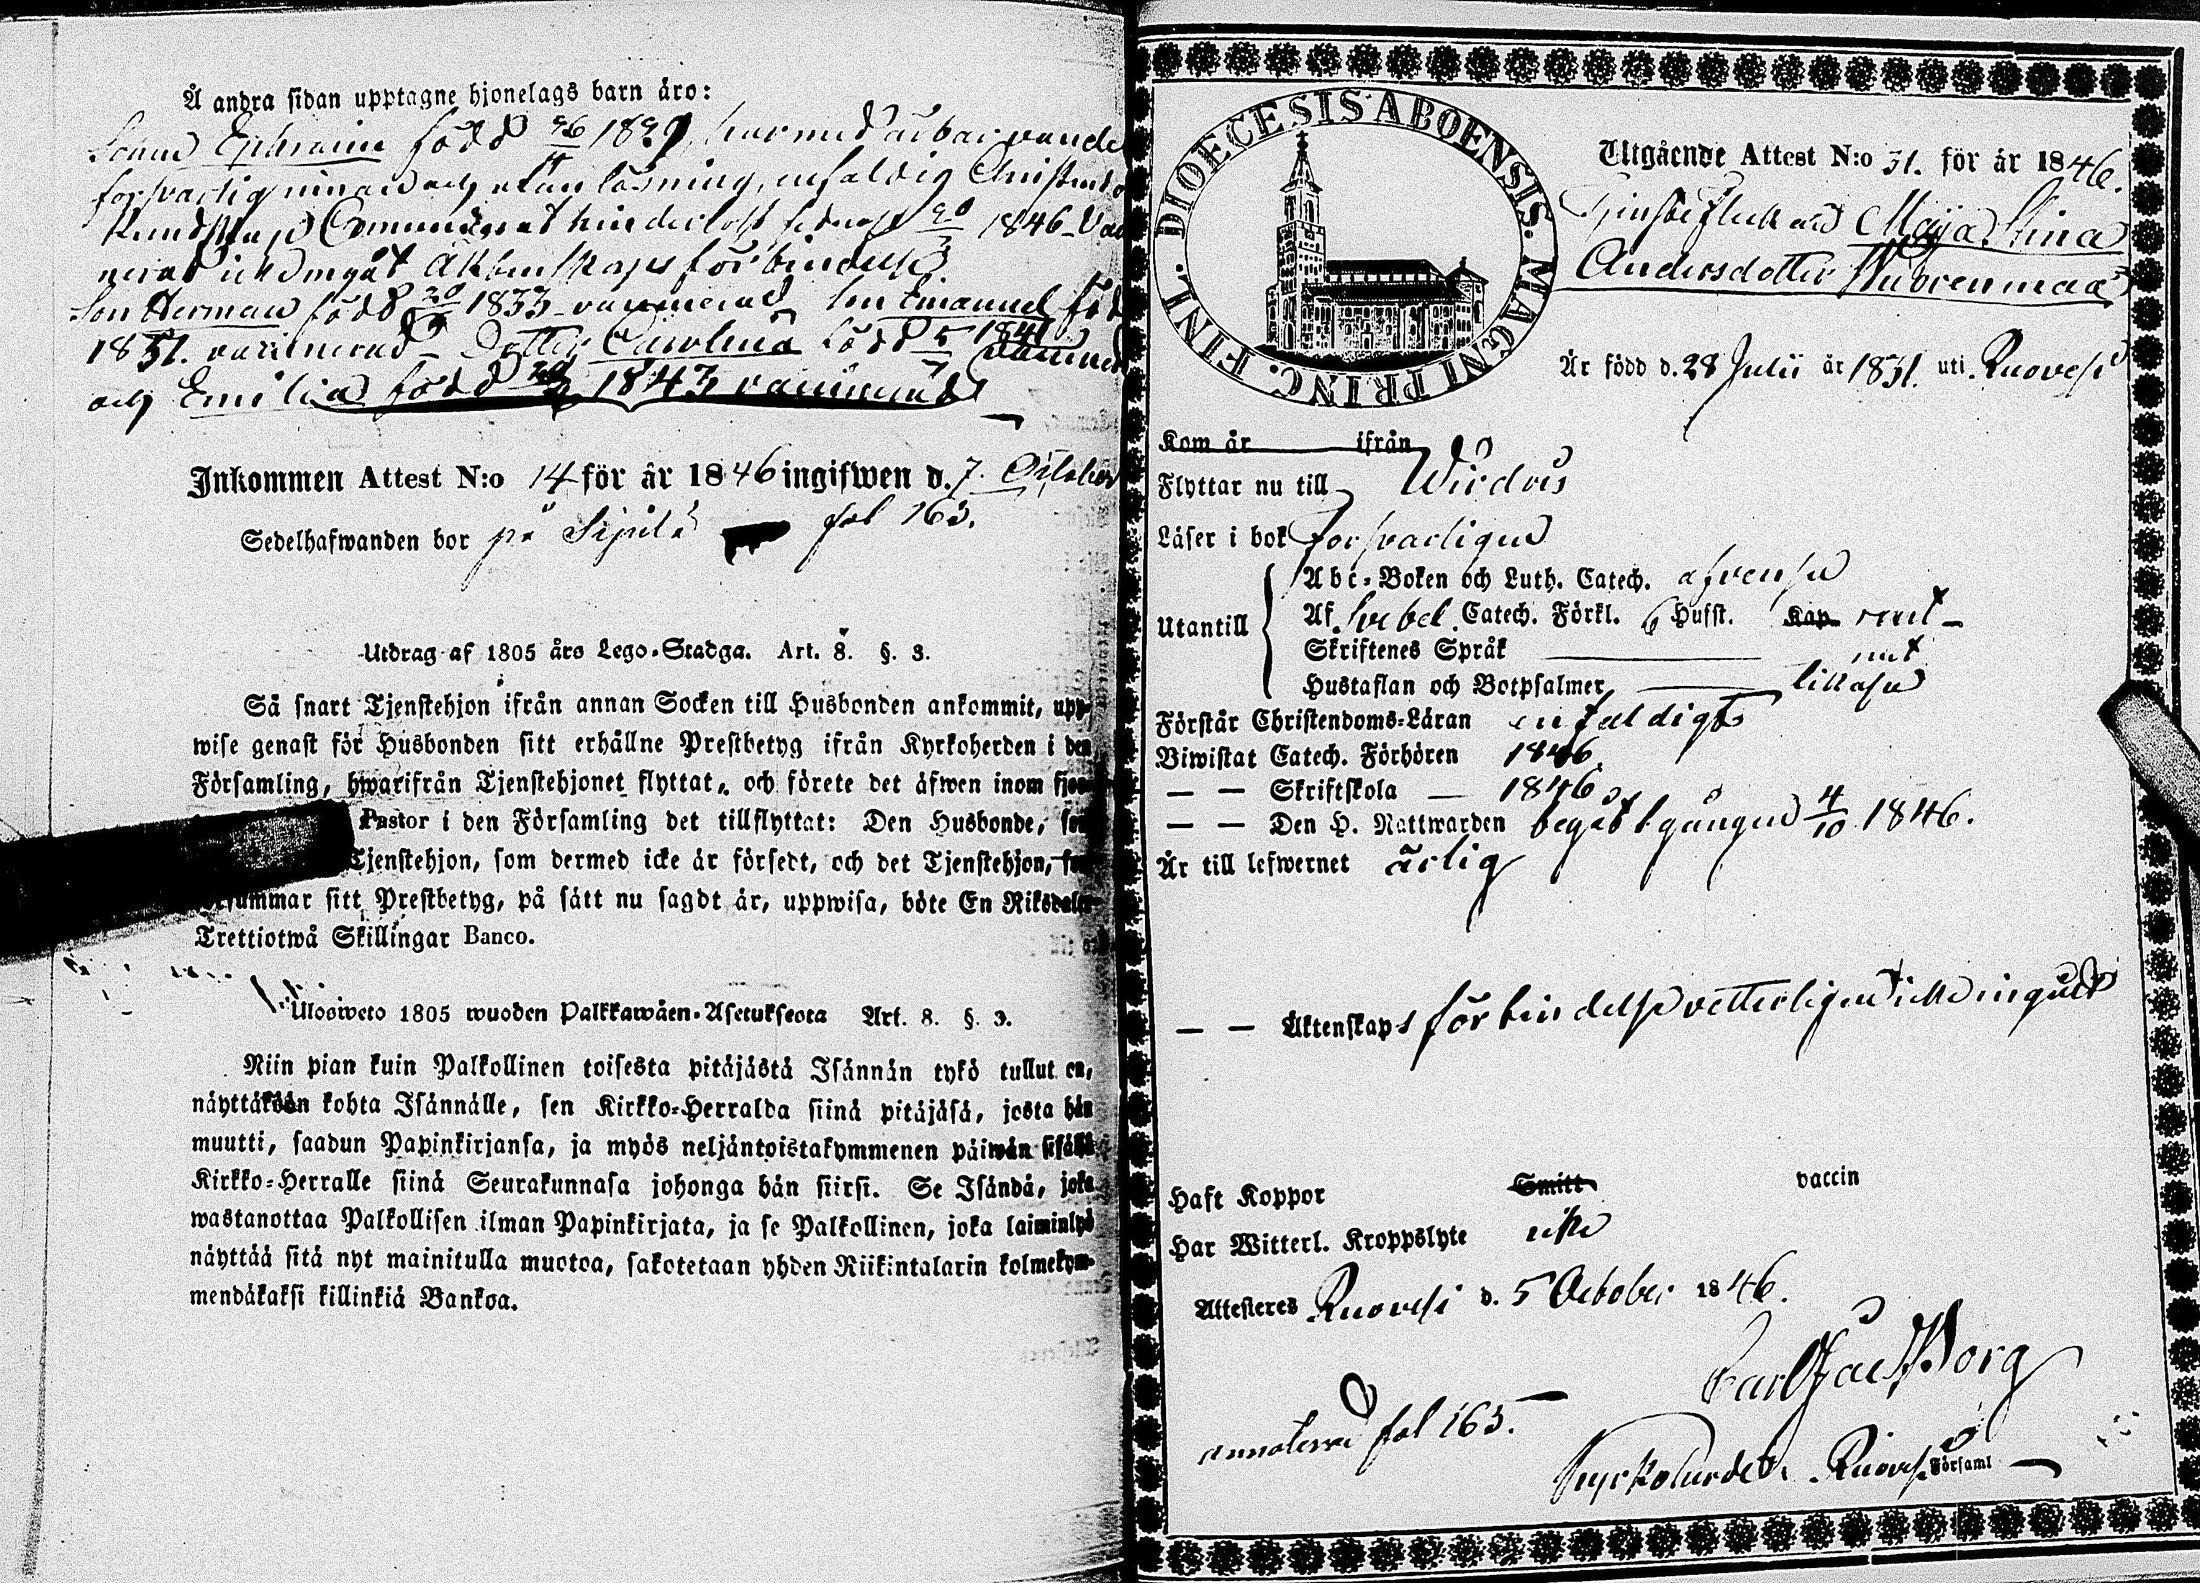 Å andra sidan upptagne hjonelags barn äro:
Sonen Ephraim född 26 1829, har med sig
försvarlig innan och utan läsning, enfaldig Christendoms
kundskap Communicerat hinderlöst sednast 20 1846 Vac
cinerad icke ingått äktenskaps förbindelse.
Son Herman född 20 1833 vaccinerad Son Emanuel född
1837. vaccinerad Dotter Carolina född 5 1841 vaccinerad
och Emilia född 20 1843 vaccinerad
Inkommen Attest N:o 14 för år 1846 ingifwen d. 7. October
Sedelhafwanden bor på Sipilä fol 163.
Utdrag af 1805 års Lego-Stadga. Art. 8. §. 3.
Så snart Tjenstehjon ifrån annan Socken till Husbonden ankommit, upp-
wise genast för Husbonden sitt erhållne Prestbetyg ifrån Kyrkoherden i den
Församling, hwarifrån Tjenstehjonet flyttat, och förete det äfwen inom
Pastor i den Församling det tillflyttat: Den Husbonde,
Tjenstehjon, som dermed icke är försedt, och det Tjenstehjon,
försummar sitt Prestbetyg, på sätt nu sagdt är, uppwisa, böte En Riksdaler
Trettiotwå Skillingar Banco.
Ulosweto 1805 wuoden Palkkawäen-Asetuksesta Art. 8. §. 3.
Niin pian kuin Palkollinen toisesta pitäjästä Isännän tykö tullut on,
näyttäköön kohta Isännälle, sen Kirkko-Herralda siinä pitäjäsä, josta hän
muutti, saadun Papinkirjansa, ja myös neljäntoistakymmenen päiwän sisällä
Kirkko-Herralle siinä Seurakunnasa johonga hän siirsi. Se Isändä, joka
wastanottaa Palkollisen ilman Papinkirjata, ja se Palkollinen, joka laiminlyö
näyttää sitä nyt mainitulla muotoa, sakotetaan yhden Riikintalarin kolmekym-
mendäkaksi killinkiä Bankoa.
DIOECESIS ABOENSIS. MAGNI PRINC. FINL.
Utgående Attest N:o 31. för år 1846.
Tjensteflickan Maja Stina
Andersdotter Wuorenmaa
Är född d. 28 Julii år 1831. uti Ruovesi
Kom år ifrån
Flyttar nu till Wirdois
Läser i bok försvarligen
Utantill
Abc-Boken och Luth. Catech. äfvenså
Af Svebel. Catech. Förkl. 6 Hufst. Kap
Skriftenes Språk
Hustaflan och Botpsalmer likaså
Förstår Christendoms-Läran enfaldigt
Biwistat Catech. Förhören 1846.
— — Skriftskola — 1846
— — Den H. Nattwarden begått gången 4/10 1846.
Är till lefwernet ärlig
— — Äktenskaps förbindelse vetterligen icke ingått
Haft Koppor Smitt vaccin
Har Witterl. Kroppslyte icke
Attesteres Ruovesi d. 5 October 1846.
Carl Jac Borg
annoterad fol 163.
Kyrkoherde i Ruovesi Församl